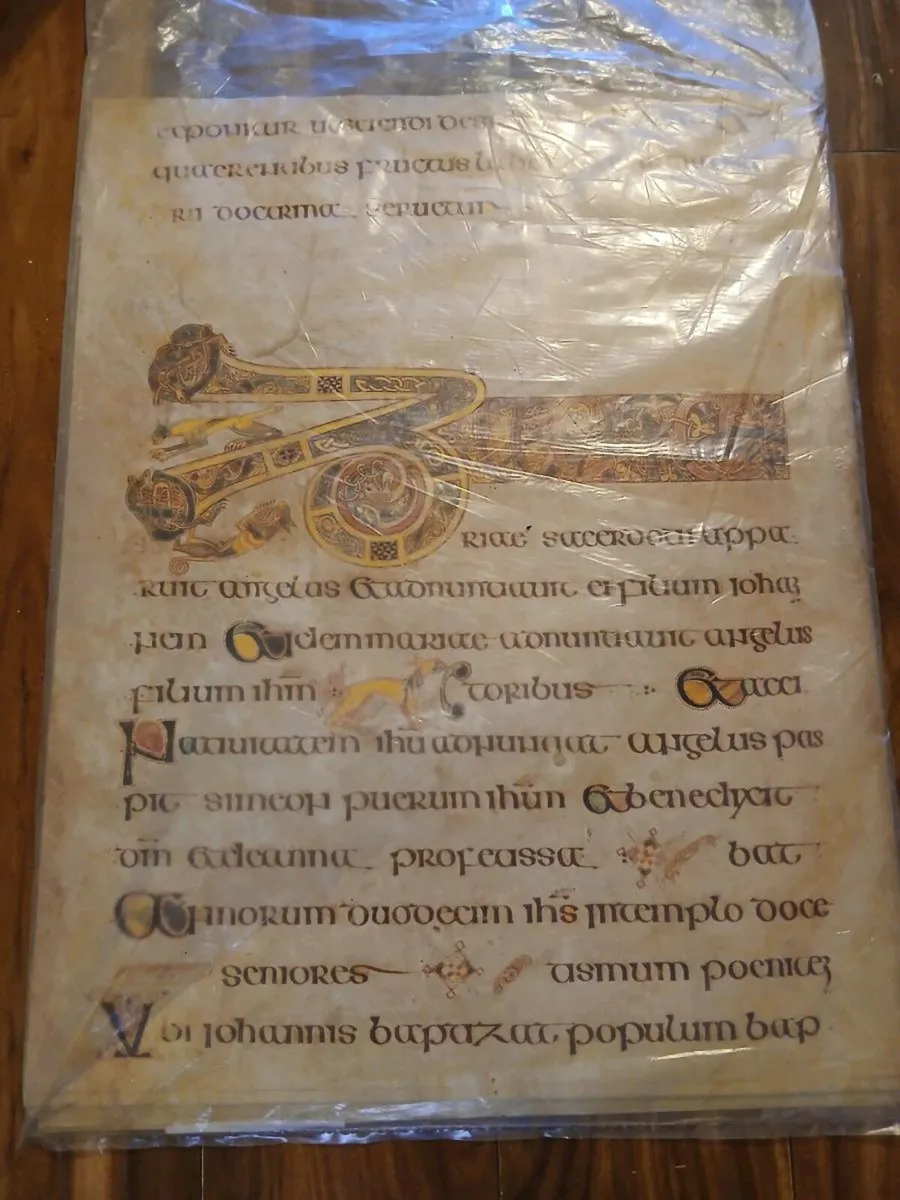 exponitur ut scienti
quaerentibus fructus
rii doctrina seruetur
Zacha
riae sacerdoti appa
ruit angelus et adnuntiauit ei filium ioha
nen et idem mariae adnuntiauit angelus
filium ihm toribus et acci
Natiuitatem ihu adnuntiat angelus pas
pit simeon puerum ihm et benedixit
dm et de anna profetissa bat
Annorum duodecim ihs in templo doce
seniores tismum poenite
Vbi iohannis baptizat populum bap